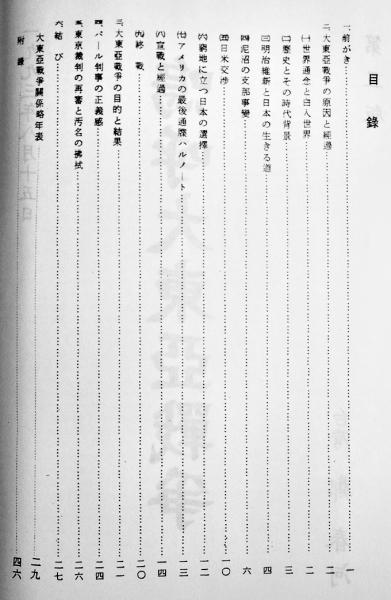 目錄
一、前がき……一
二、大東亞戰爭の原因と經過……二
㈠世界通念と白人世界……二
㈡歷史とその時代背景……三
㈢明治維新と日本の生きる道……四
㈣泥沼の支那事變……六
㈤日米交渉……一〇
㈥窮地に立つ日本の選擇……一二
㈦アメリカの最後通牒ハルノート……一三
㈧宣戰と經過……一四
㈨終戰……二〇
三、大東亞戰爭の目的と結果……二一
四、パール判事の正義感……二四
五、東京裁判の再審と汚名の拂拭……二六
六、結び……二七
大東亞戰爭關係略年表……二九
附錄……四六